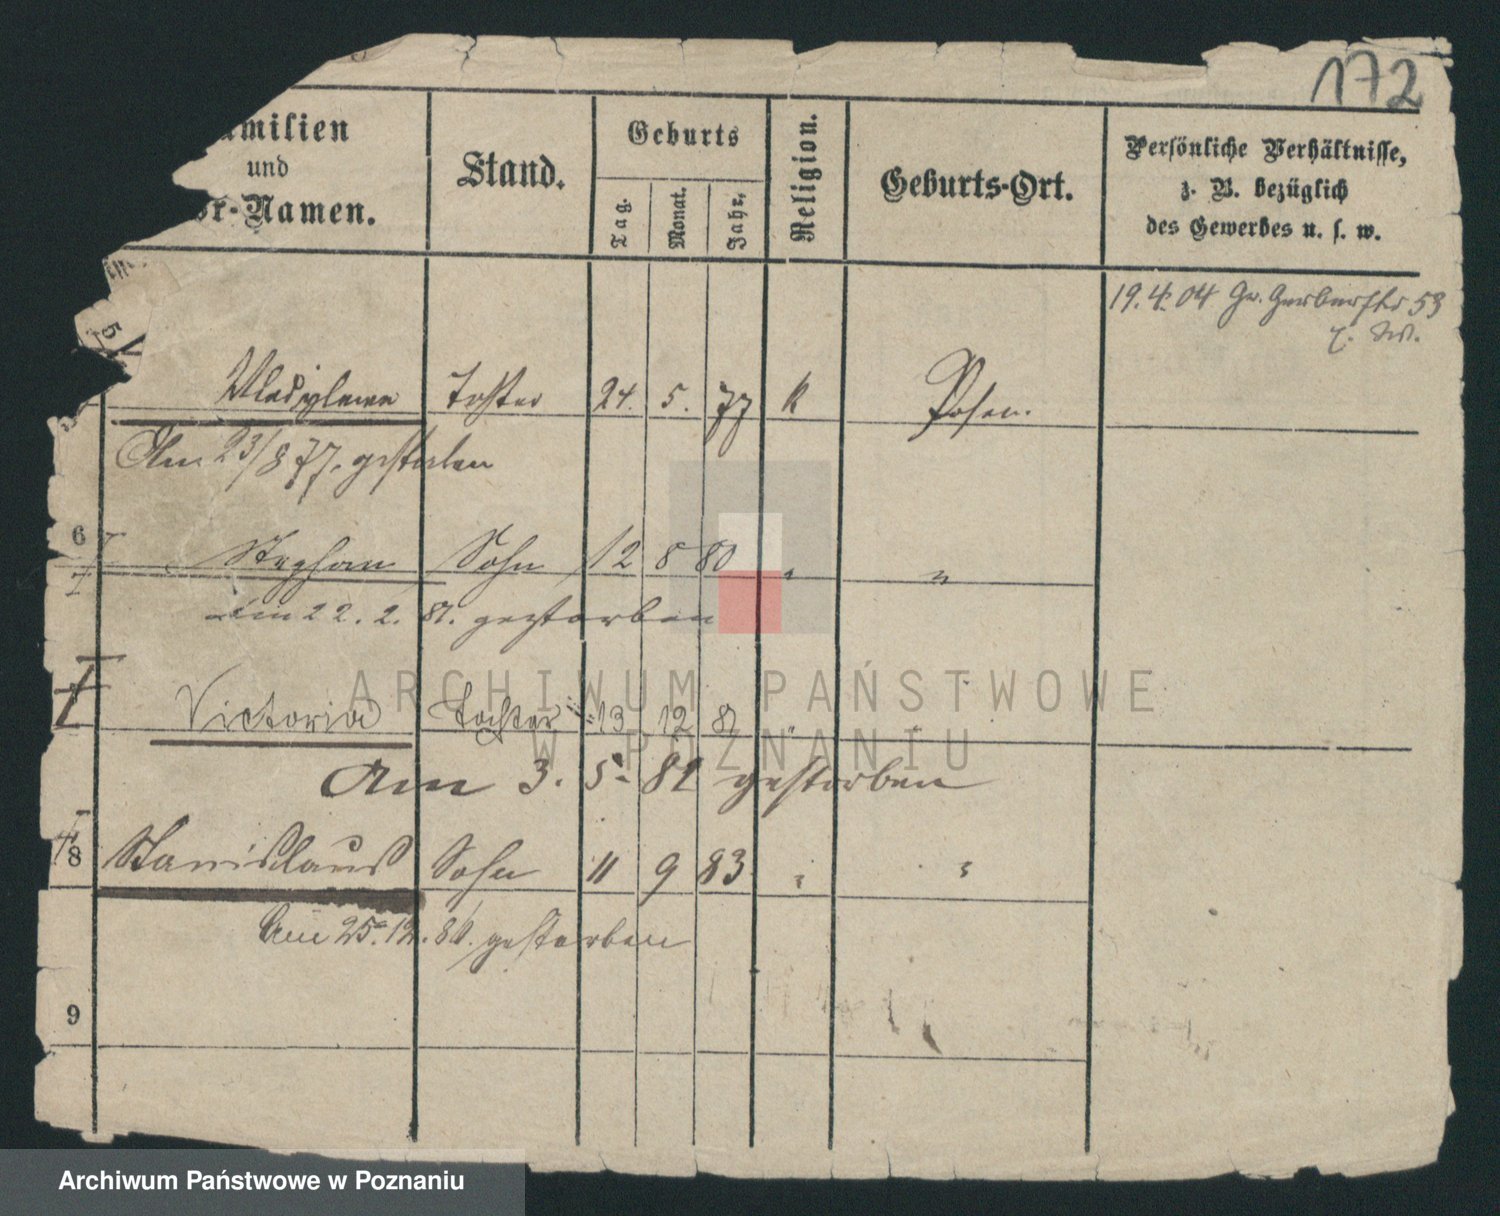 172
Familien
und
Vor-Namen.
Stand.
Geburts
Tag.
Monat.
Jahr,
Religion.
Geburts-Ort.
Persönliche Verhältnisse,
z. B. bezüglich
des Gewerbes u. s. w.
19.4.04 Gr. Gerberstr 53
5
Wladyslawa Tochter 24. 5. 77 k Posen.
Am 23/8 77. gestorben
6 Stephan Sohn 12 8 80 " "
Am 22. 2. 81. gestorben
Victoria Tochter 13 12 81 "
Am 3. 5. 82 gestorben
8 Stanislaus Sohn 11 9 83 " "
Am 25. 12. 86. gestorben
9
ARCHIWUM PAŃSTWOWE
W POZNANIU
Archiwum Państwowe w Poznaniu